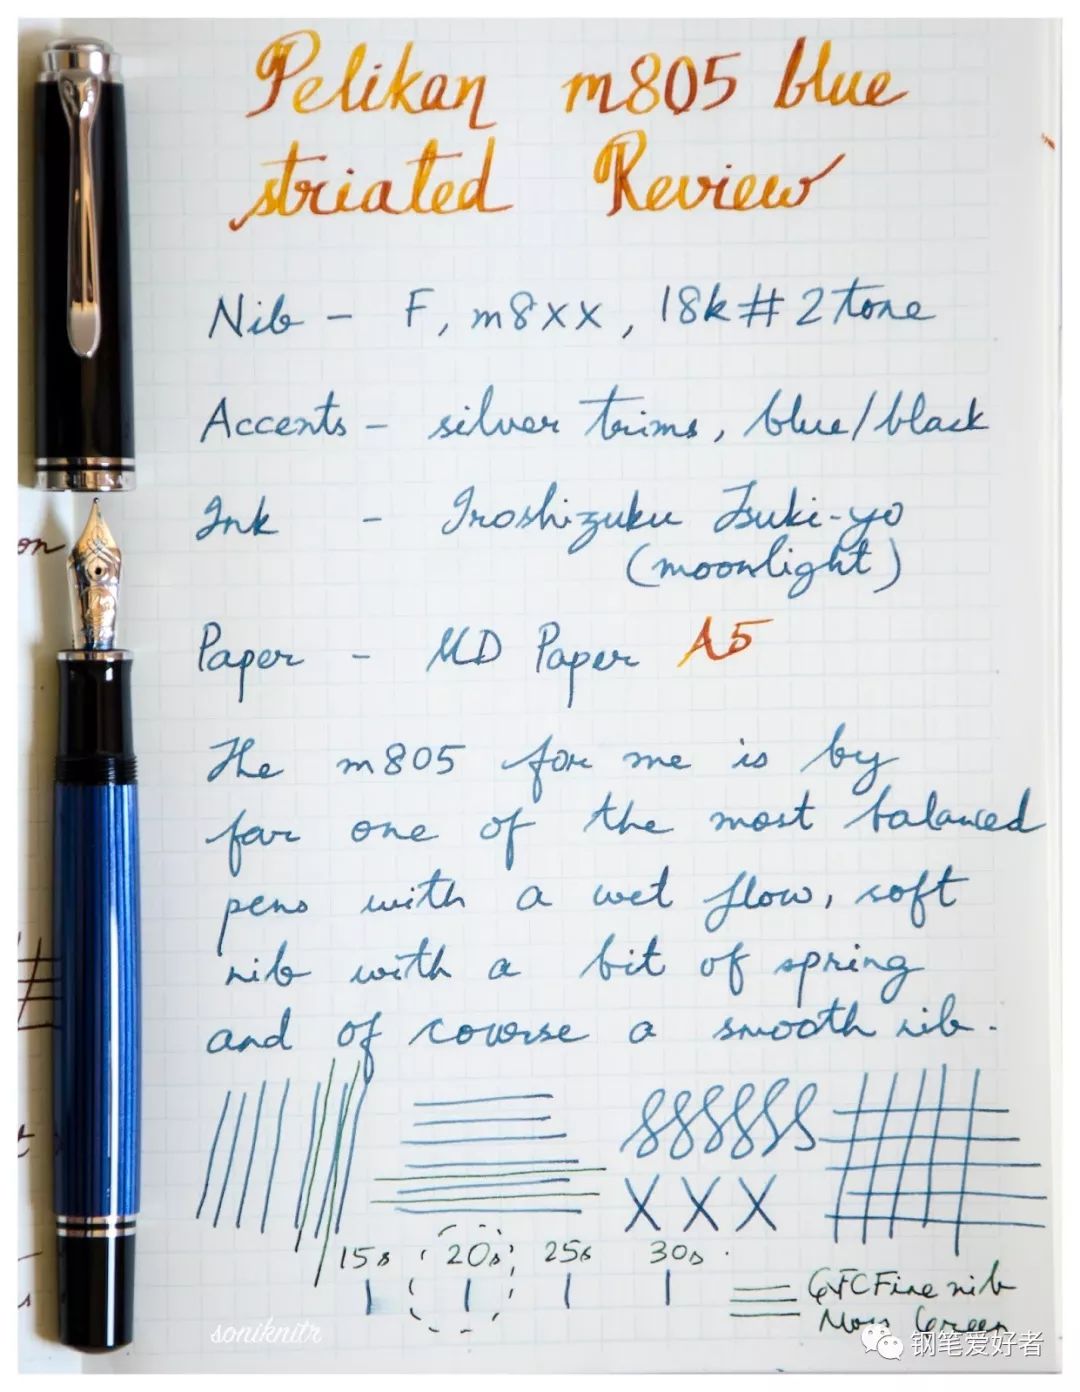 Pelikan m805 blue
striated Review
Nib - F, m8xx, 18k # 2 tone
Accents - silver trims, blue/black
Ink - Iroshizuku Tsuki-yo
(moonlight)
on
Paper - MD Paper A5
The m805 for me is by
far one of the most balanced
pens with a wet flow, soft
nib with a bit of spring
and of course a smooth nib.
X X X
15s 20s 25s 30s
Fine nib
Moss Green
soniknitr
钢笔爱好者